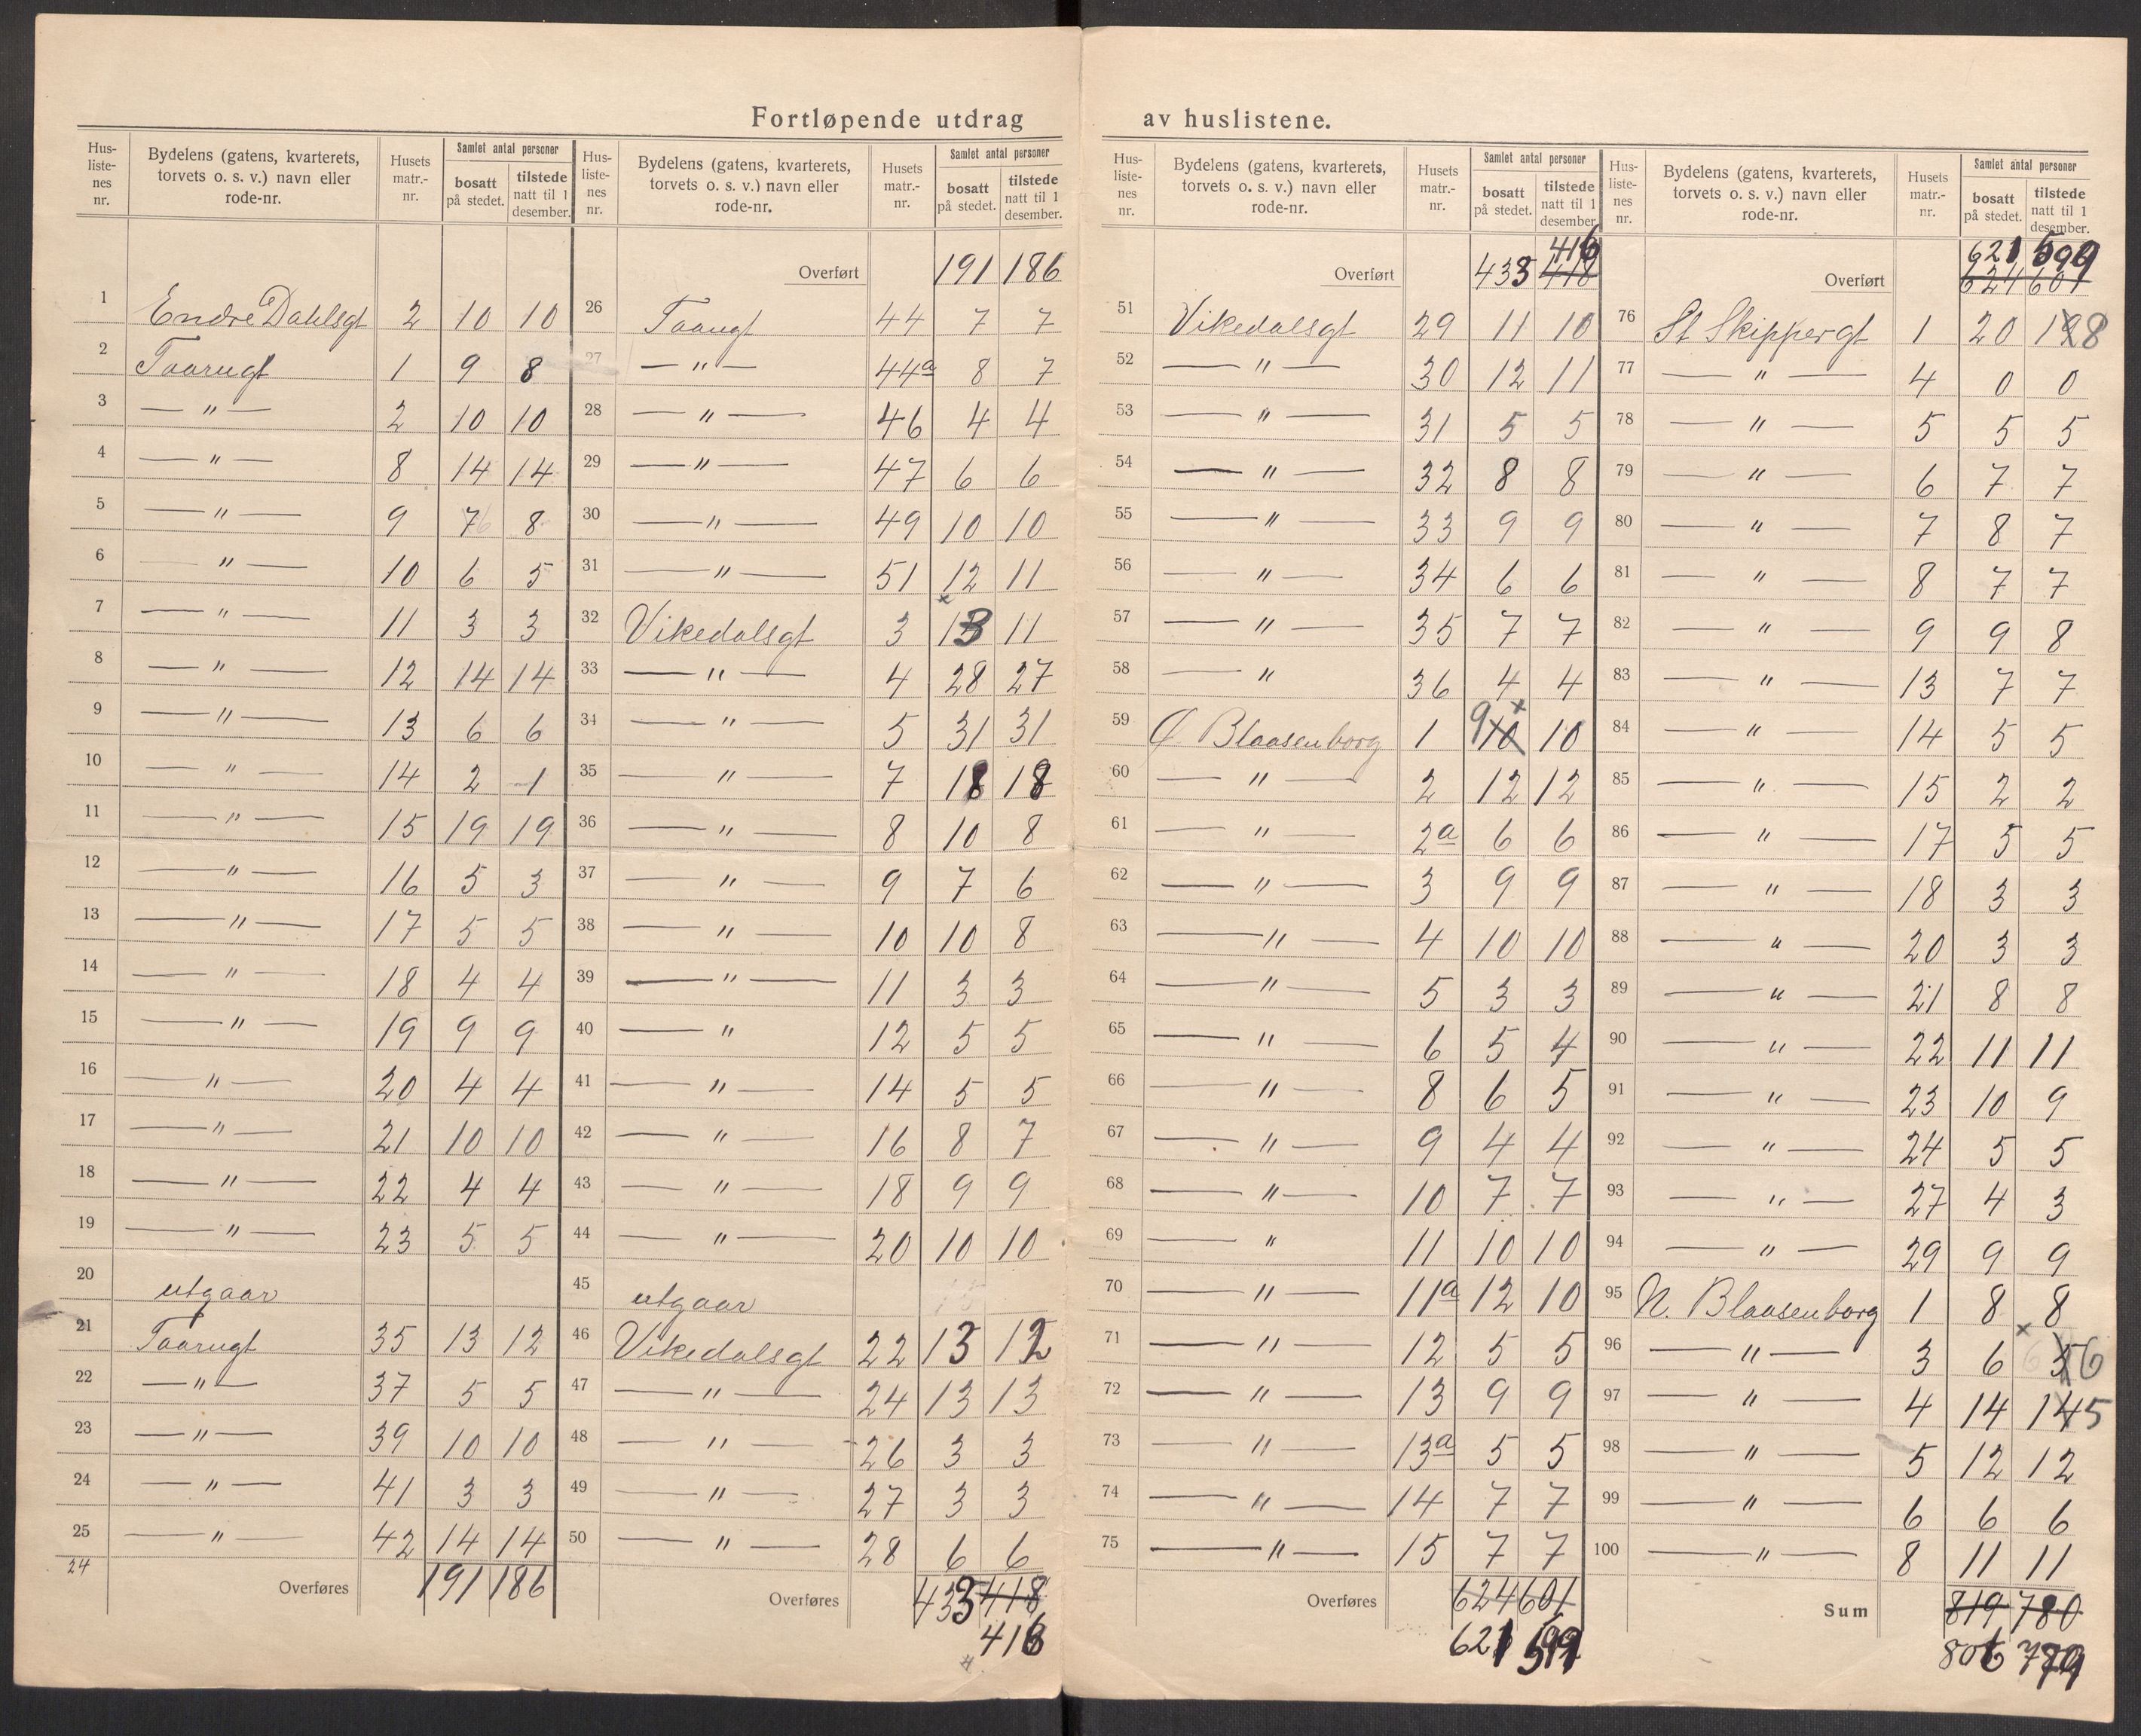 Fortløpende utdrag av huslistene.
Hus-liste-nes nr. | Bydelens (gatens, kvarterets, torvets o. s. v.) navn eller rode-nr. | Husets matr.-nr. | Samlet antal personer bosatt på stedet. | tilstede natt til 1 desember.
1 Endre Dahlsgt 2 10 10
2 Taarugt 1 9 8
3 — " — 2 10 10
4 — " — 8 14 14
5 — " — 9 7 8
6 — " — 10 6 5
7 — " — 11 3 3
8 — " — 12 14 14
9 — " — 13 6 6
10 — " — 14 2 1
11 — " — 15 19 19
12 — " — 16 5 3
13 — " — 17 5 5
14 — " — 18 4 4
15 — " — 19 9 9
16 — " — 20 4 4
17 — " — 21 10 10
18 — " — 22 4 4
19 — " — 23 5 5
20 utgaar
21 Taarugt 35 13 12
22 — " — 37 5 5
23 — " — 39 10 10
24 — " — 41 3 3
25 — " — 42 14 14
24 Overføres 191 186
Hus-liste-nes nr. | Bydelens (gatens, kvarterets, torvets o. s. v.) navn eller rode-nr. | Husets matr.-nr. | Samlet antal personer bosatt på stedet. | tilstede natt til 1 desember.
Overført 191 186
26 Taarugt 44 7 7
27 — " — 44a 8 7
28 — " — 46 4 4
29 — " — 47 6 6
30 — " — 49 10 10
31 — " — 51 12 11
32 Vikedalsgt 3 13 11
33 — " — 4 28 27
34 — " — 5 31 31
35 — " — 7 18 18
36 — " — 8 10 8
37 — " — 9 7 6
38 — " — 10 10 8
39 — " — 11 3 3
40 — " 12 5 5
41 — " — 14 5 5
42 — " — 16 8 7
43 — " — 18 9 9
44 — " — 20 10 10
45 utgaar
46 Vikedalsgt 22 13 12
47 — " — 24 13 13
48 — " — 26 3 3
49 — " — 27 3 3
50 — " — 28 6 6
Overføres 433 418
416
Hus-liste-nes nr. | Bydelens (gatens, kvarterets, torvets o. s. v.) navn eller rode-nr. | Husets matr.-nr. | Samlet antal personer bosatt på stedet. | tilstede natt til 1 desember.
416
Overført 433 418
51 Vikedalsgt 29 11 10
52 — " — 30 12 11
53 — " — 31 5 5
54 — " — 32 8 8
55 — " — 33 9 9
56 — " — 34 6 6
57 — " — 35 7 7
58 — " 36 4 4
59 Ø. Blaasenborg 1 9 10 10
60 — " — 2 12 12
61 — " — 2a 6 6
62 — " — 3 9 9
63 — " — 4 10 10
64 — " — 5 3 3
65 — " — 6 5 4
66 — " — 8 6 5
67 — " — 9 4 4
68 — " — 10 7 7
69 — " 11 10 10
70 — " — 11a 12 10
71 — " — 12 5 5
72 — " — 13 9 9
73 — " — 13a 5 5
74 — " — 14 7 7
75 — " — 15 7 7
Overføres 624 601
621 599
Hus-liste-nes nr. | Bydelens (gatens, kvarterets, torvets o. s. v.) navn eller rode-nr. | Husets matr.-nr. | Samlet antal personer bosatt på stedet. | tilstede natt til 1 desember.
621 599
Overført 624 601
76 St Skippergt 1 20 198
77 — " — 4 0 0
78 — " — 5 5 5
79 — " — 6 7 7
80 — " — 7 8 7
81 — " — 8 7 7
82 — " — 9 9 8
83 — " — 13 7 7
84 — " — 14 5 5
85 — " — 15 2 2
86 — " — 17 5 5
87 — " — 18 3 3
88 — " — 20 3 3
89 — " — 21 8 8
90 — " — 22 11 11
91 — " — 23 10 9
92 — " — 24 5 5
93 — " — 27 4 3
94 — " — 29 9 9
95 N. Blaasenborg 1 8 8
96 — " — 3 6 5 6
97 — " — 4 14 145
98 — " — 5 12 12
99 — " — 6 6 6
100 — " — 8 11 11
Sum 819 780
806 779